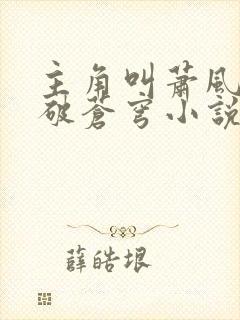 主角叫蕭風
破蒼穹小說
薛皓垠